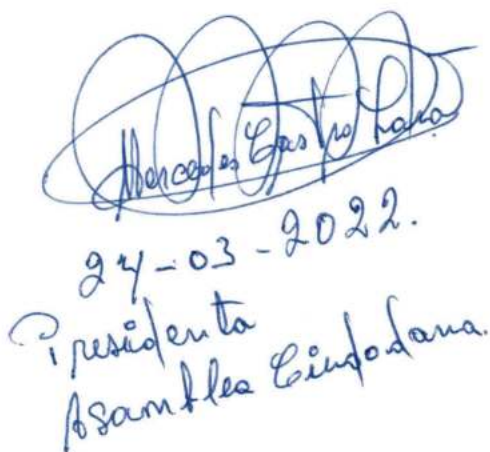 Mercedes Castro Lara
24-03-2022.
Presidenta
Asamblea Ciudadana.